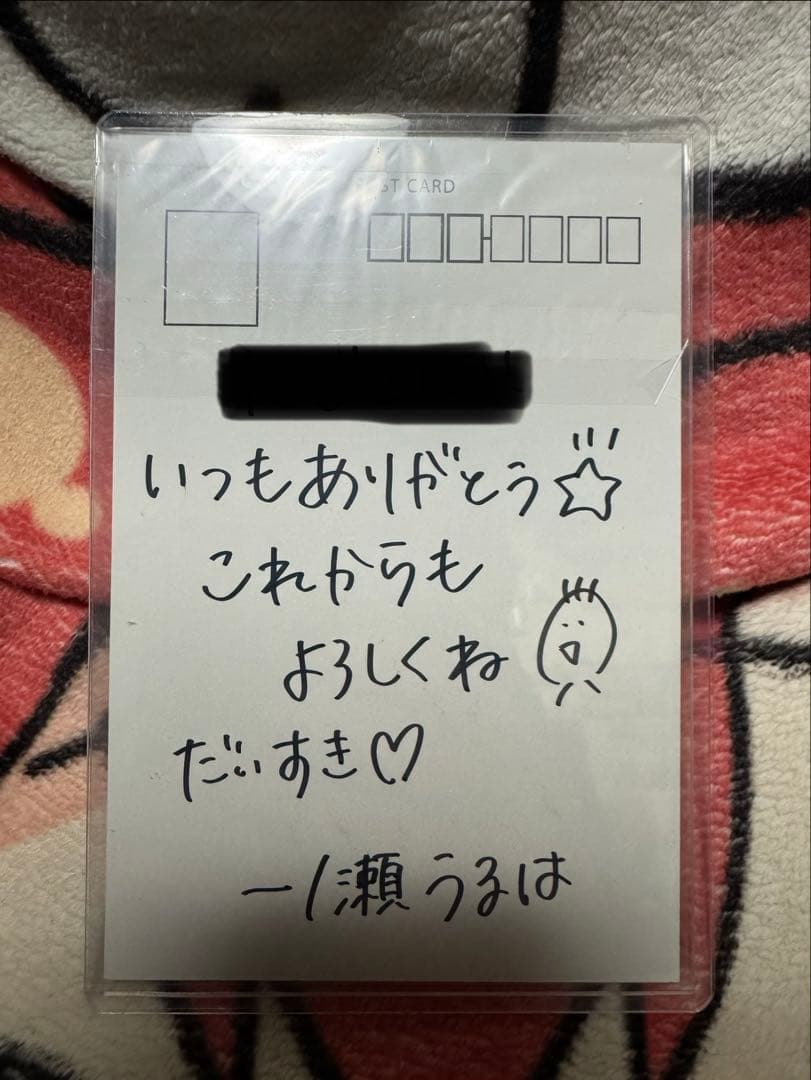 POST CARD
いつもありがとう☆
これからも
よろしくね
だいすき♡
一ノ瀬うるは